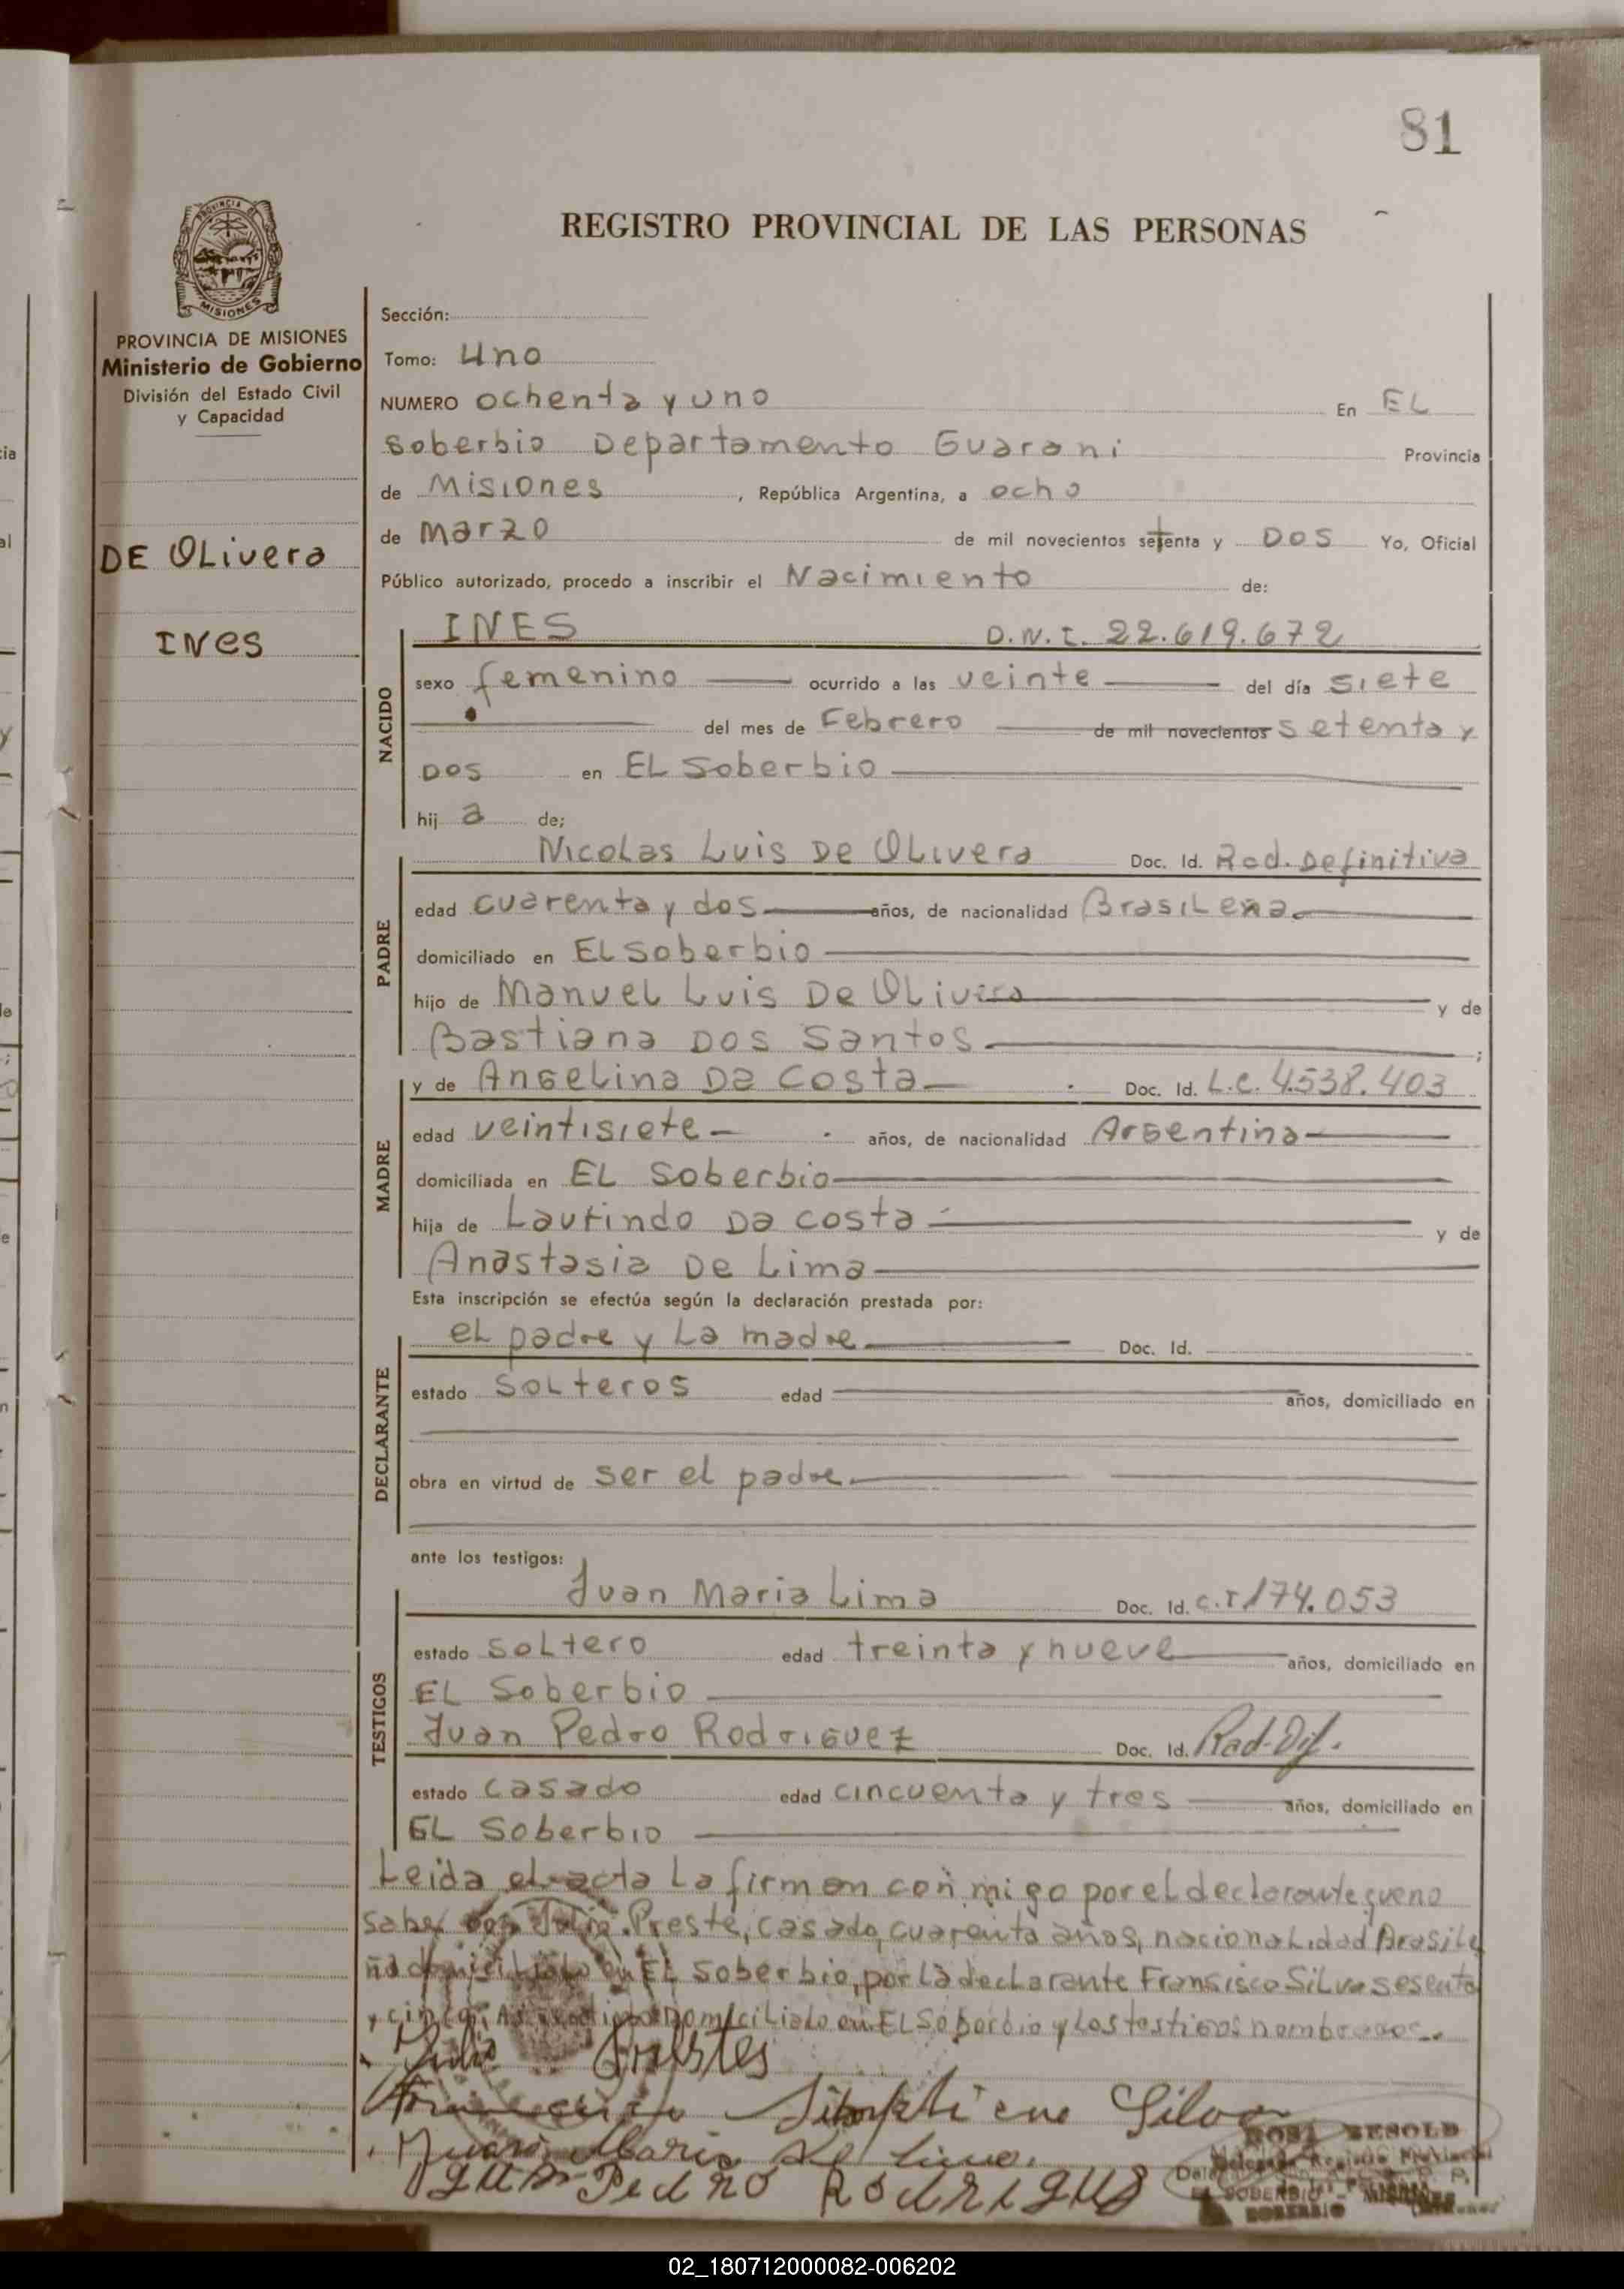 81
PROVINCIA DE
MISIONES
REGISTRO PROVINCIAL DE LAS PERSONAS
PROVINCIA DE MISIONES
Ministerio de Gobierno
División del Estado Civil
y Capacidad
DE OLivera
INes
Sección:
Tomo: Uno
NUMERO ochenta y uno En EL
Soberbio Departamento Guarani Provincia
de Misiones, República Argentina, a ocho
de Marzo de mil novecientos setenta y DOS Yo, Oficial
Público autorizado, procedo a inscribir el Nacimiento de:
NACIDO
INES D.N.I. 22.619.672
sexo femenino ocurrido a las veinte del día siete
del mes de Febrero de mil novecientos setenta y
DOS en EL Soberbio
hija de;
PADRE
Nicolas Luis De OLivera Doc. Id. Rad. Definitiva
edad cuarenta y dos años, de nacionalidad BrasiLeña
domiciliado en EL Soberbio
hijo de ManueL Luis De OLivera y de
Bastiana Dos Santos ;
MADRE
y de AngeLina Da Costa Doc. Id. L.C. 4.538.403
edad veintisiete años, de nacionalidad Argentina
domiciliada en EL Soberbio
hija de Laurindo Da Costa y de
Anastasia De Lima
Esta inscripción se efectúa según la declaración prestada por:
DECLARANTE
eL padre y La madre Doc. Id.
estado SoLteros edad años, domiciliado en
obra en virtud de ser el padre
ante los testigos:
TESTIGOS
Juan Maria Lima Doc. Id. C.I 174.053
estado soLtero edad treinta y nueve años, domiciliado en
EL Soberbio
Juan Pedro Rodriguez Doc. Id. Rad. Dif.
estado casado edad cincuenta y tres años, domiciliado en
EL Soberbio
Leida el acta La firman con migo por el declarante que no
saber Julio Preste, casado, cuarenta años, nacionaLidad BrasiLe
ña domiciliado en EL Soberbio, por La declarante Fransisco SiLva sesenta
y cinco, Domiciliado en EL Soberbio y Los testigos nombrados.
Julio Prestes
Silva
Juan Maria de Lima.
Juan Pedro Rodrigus
BESOLD
EL SOBERBIO - MISIONES
SOBERBIO
02_180712000082-006202